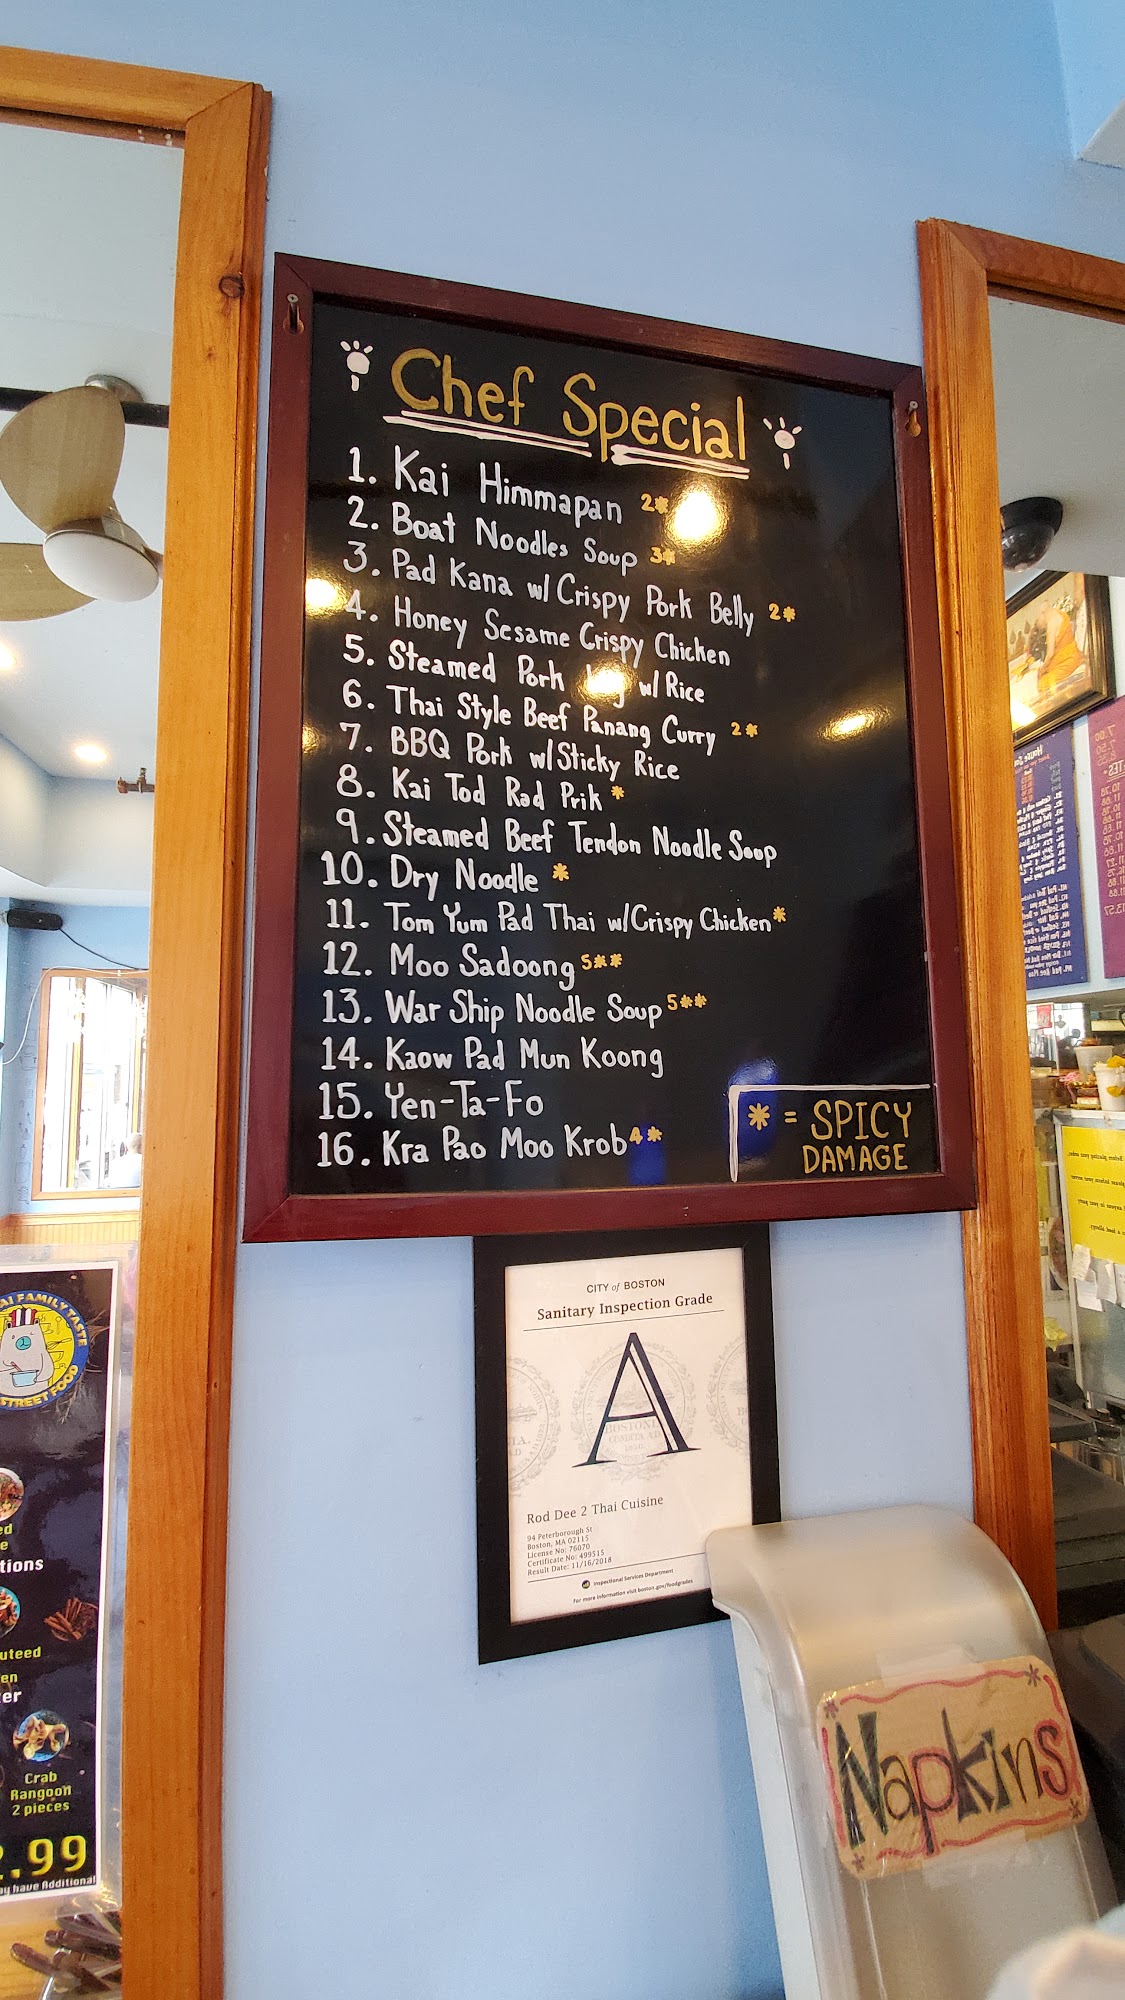 Chef Special
1. Kai Himmapan 2*
2. Boat Noodles Soup 3*
3. Pad Kana w/ Crispy Pork Belly 2*
4. Honey Sesame Crispy Chicken
5. Steamed Pork w/ Rice
6. Thai Style Beef Panang Curry 2*
7. BBQ Pork w/ Sticky Rice
8. Kai Tod Rad Prik *
9. Steamed Beef Tendon Noodle Soup
10. Dry Noodle *
11. Tom Yum Pad Thai w/ Crispy Chicken *
12. Moo Sadoong 5**
13. War Ship Noodle Soup 5**
14. Kaow Pad Mun Koong
15. Yen-Ta-Fo
16. Kra Pao Moo Krob 4*
* = SPICY
DAMAGE
CITY of BOSTON
Sanitary Inspection Grade
A
Rod Dee 2 Thai Cuisine
94 Peterborough St
Boston, MA 02115
License No: 76070
Certificate No: 499515
Result Date: 11/16/2018
Inspectional Services Department
For more information visit boston.gov/foodgrades
Napkins
FAMILY TASTE
STREET FOOD
Crab
Rangoon
2 pieces
.99
have Additional